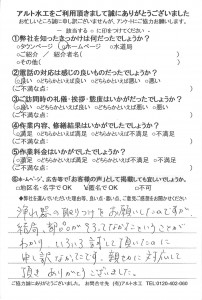 アルト水工をご利用頂きまして誠にありがとうございました
お忙しいところ誠に申し訳ございませんが、アンケートにご協力お願いします。
該当する○に印をつけてください
①弊社を知ったきっかけは何だったでしょうか?
○タウンページ ○ホームページ ○水道局
○ご紹介 / ご紹介者名(
○その他(
②電話の対応は感じの良いものだったでしょうか?
○良い ○どちらかといえば良い ○どちらかといえば悪い ○悪い
ご不満な点:
③ご訪問時の礼儀・挨拶・態度はいかがだったでしょうか?
○良い ○どちらかといえば良い ○どちらかといえば悪い ○悪い
ご不満な点:
④作業内容、修繕結果はいかがだったでしょうか?
○満足 ○どちらかといえば満足 ○どちらかといえば不満足 ○不満足
ご不満な点:
⑤作業料金はいかがでしたでしょうか?
○満足 ○どちらかといえば満足 ○どちらかといえば不満足 ○不満足
ご不満な点:
⑥ホームページ、広告等で「お客様の声」として掲載しても宜しいでしょうか。
○地区名・名字でOK ○匿名でOK ○不可
浄水器の取りつけをお願いしたのですが、
結局、部品が
わかり、いろいろ
申し訳なかったです。親せつに対応して
頂きありがとうございました。
ご協力ありがとうございました。 お問合せ先 (有)アルト水工 TEL:0120-402-060